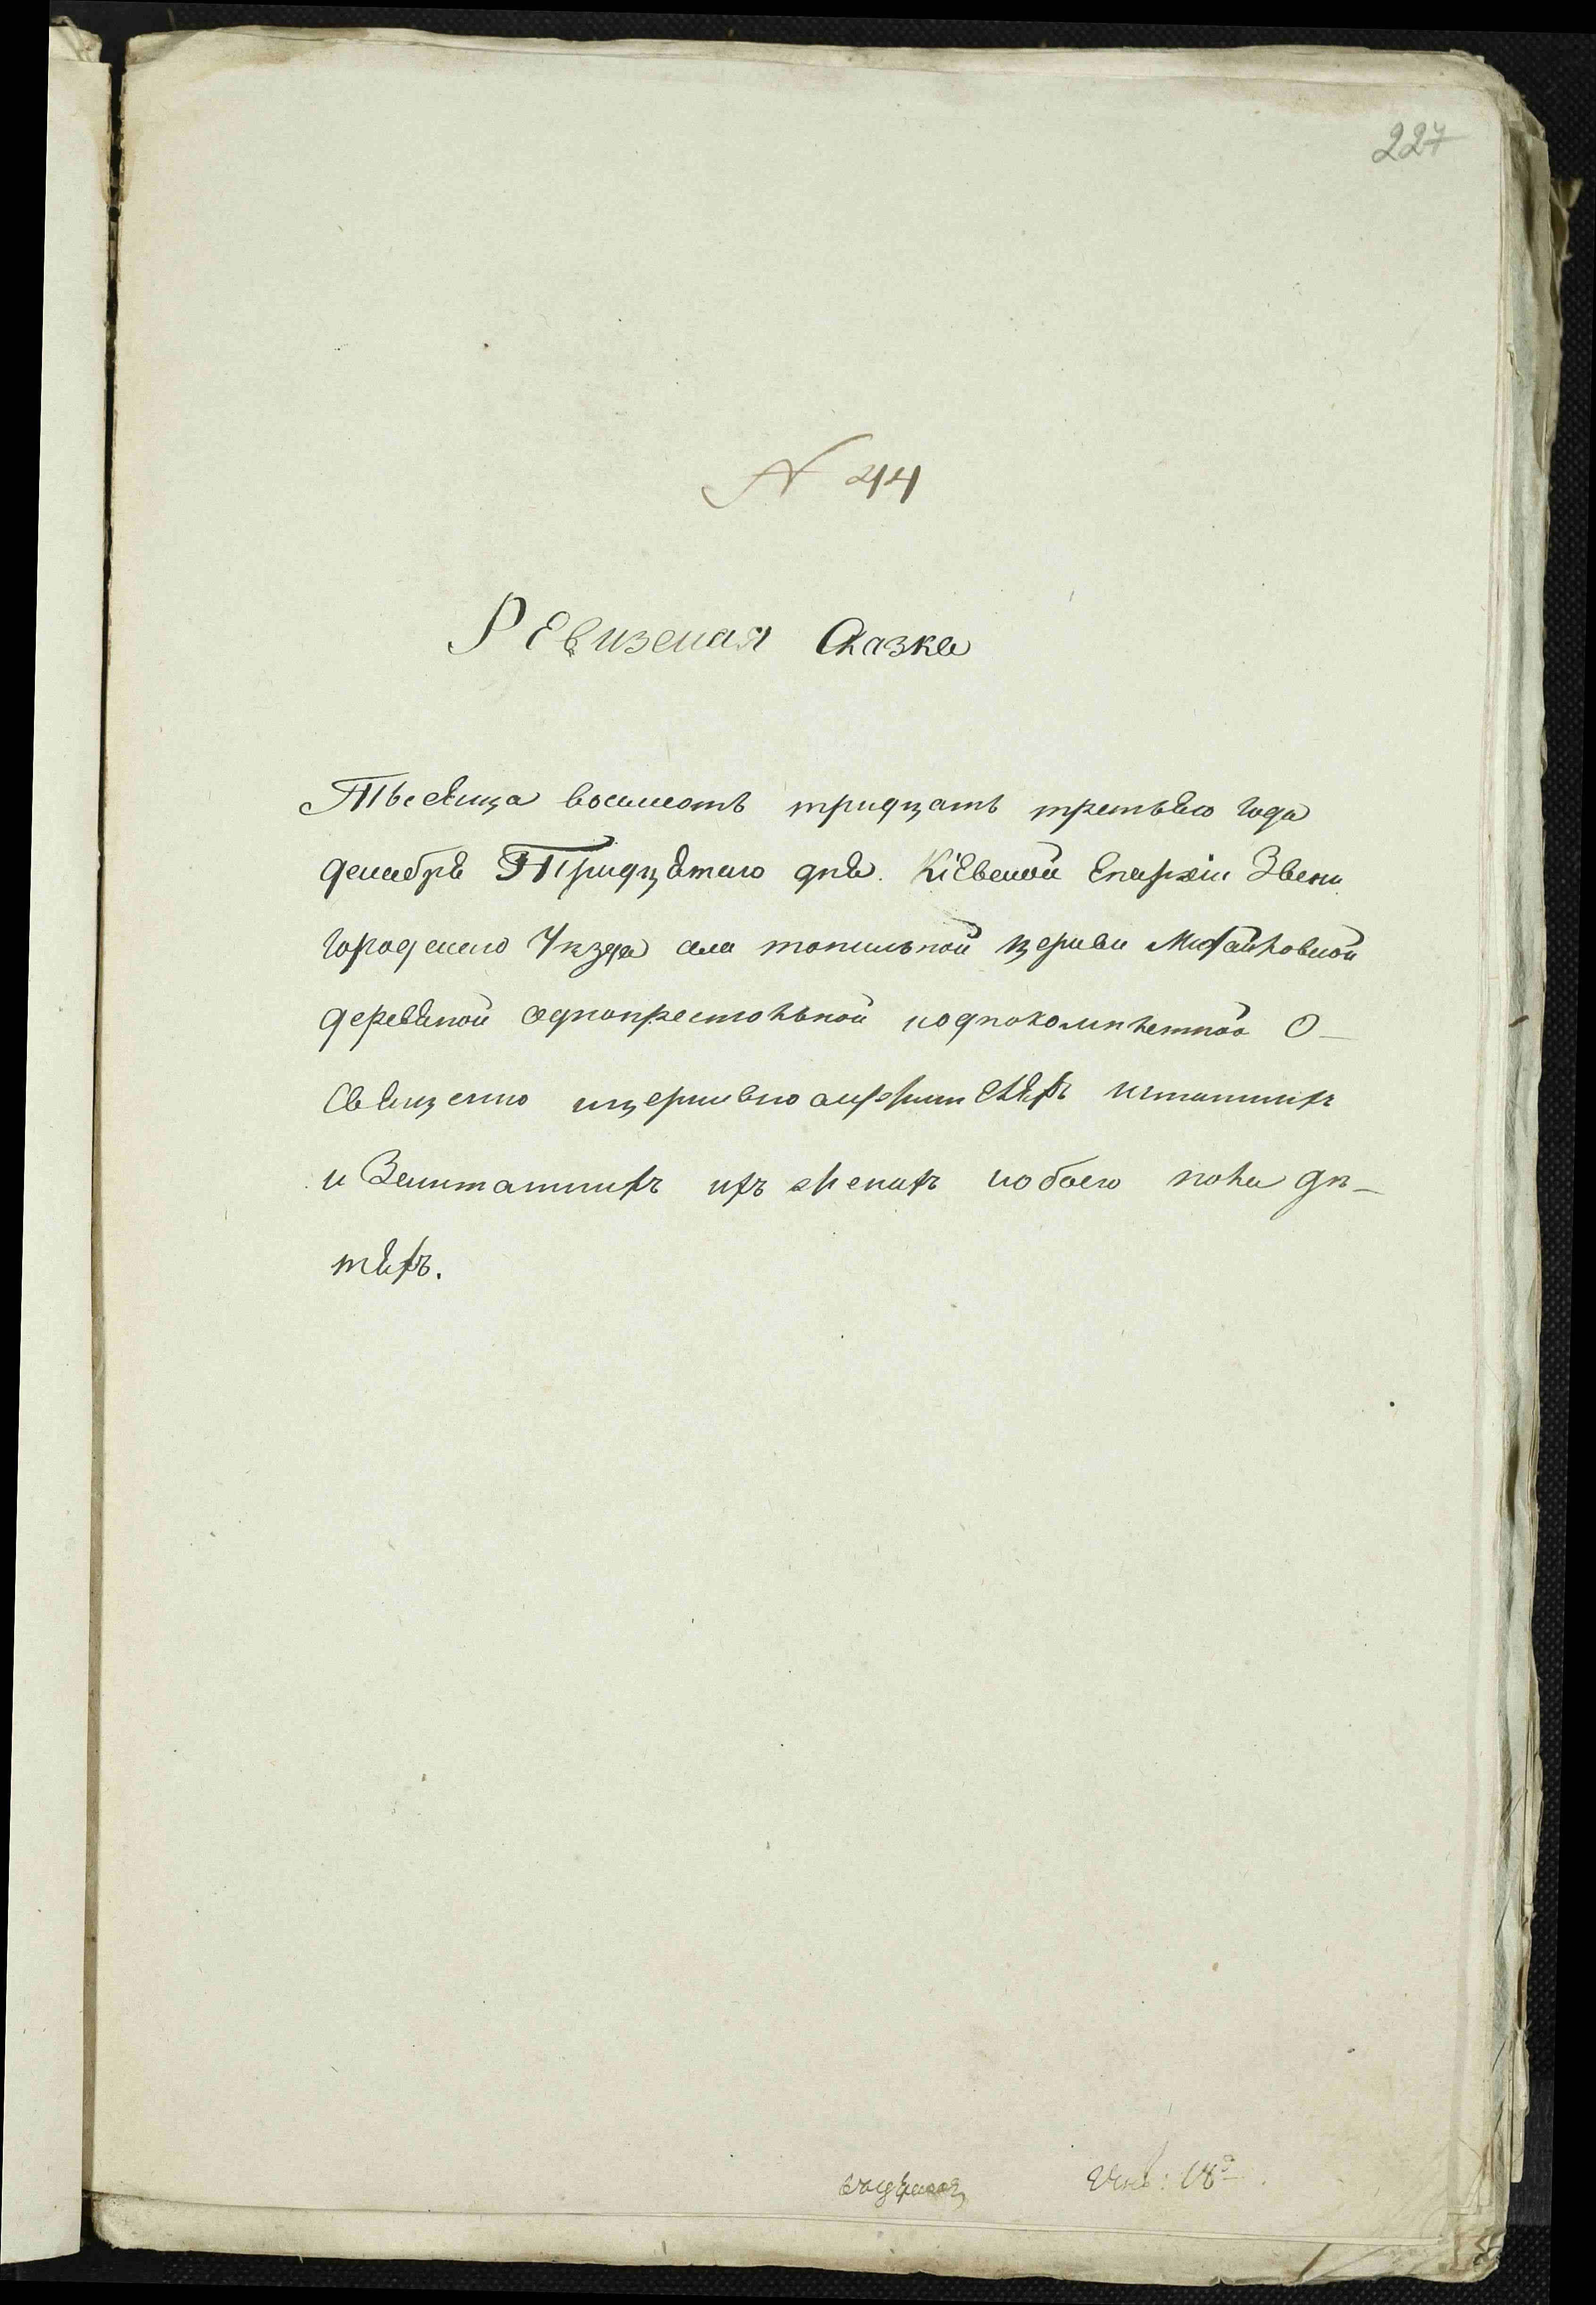 227
N 44
Ревизская Сказка
Тысяща восемсотъ тридцать третьяго года
декабря Тридцятаго дня. Кіевской Епархіи Звени
городского Уѣзда села топильной церкви Михайловской
деревяной однопрестольной иоднокомплетной О
Священно ицерковнослужителяхъ иштатныхъ
и Заштатныхъ ихъ женахъ иобоего пола дѣ-
тяхъ.